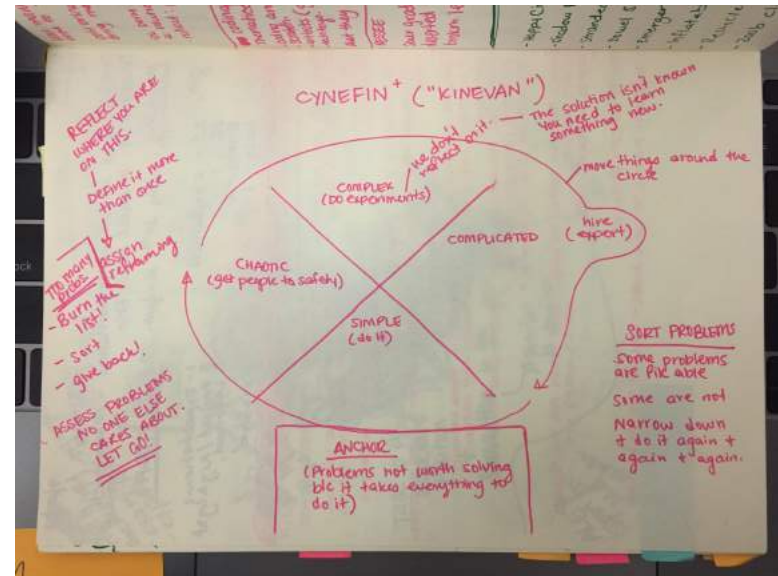 CYNEFIN+ ("KINEVAN")
REFLECT
WHERE YOU ARE
ON THIS.
DEFINE it more
than once
assign
reframing
Too many
probs
- Burn the
list!
- sort
- give back!
ASSESS PROBLEMS
NO ONE ELSE
CARES ABOUT.
LET GO!
COMPLEX
(Do experiments)
we don't
reflect on it.
The solution isn't known
You need to learn
something new.
move things around the
circle
COMPLICATED
hire
(expert)
CHAOTIC
(get people to safety)
SIMPLE
(do it)
ANCHOR
(Problems not worth solving
b/c it takes everything to
do it)
SORT PROBLEMS
some problems
are fixable
Some are not
Narrow down
+ do it again +
again + again.